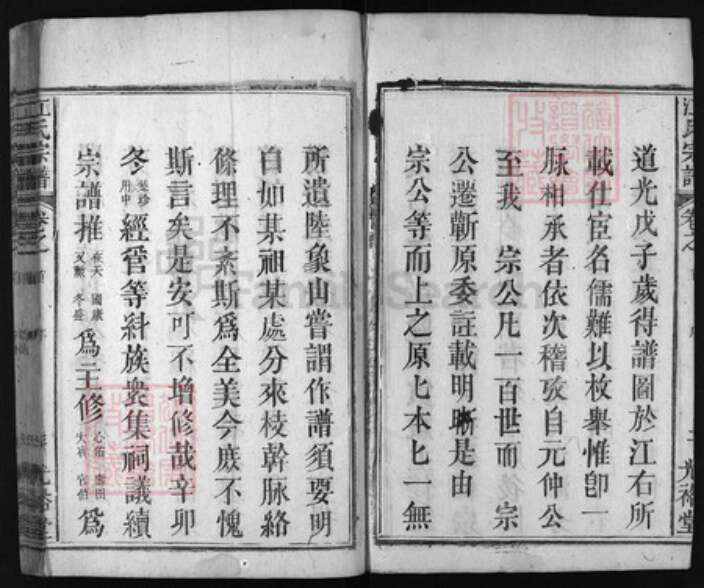 道光戊子歲得譜圖於江右所
載仕宦名儒難以枚舉惟卽一
脉相承者依次稽攷自元仲公
至我 宗公凡一百世而 宗
公遷蘄原委註載明晰是由
宗公等而上之原匕本匕一無
所遺陸象山嘗謂作譜須要明
白如某祖某處分來枝幹脉絡
條理不紊斯爲全美今庶不愧
斯言矣是安可不增修哉辛卯
冬 用中 經營等糾族衆集祠議續
宗譜推 夜天 國康 冬盛 爲主修 官伯 爲
江氏宗譜 卷之首
光裕堂
FamilySearch